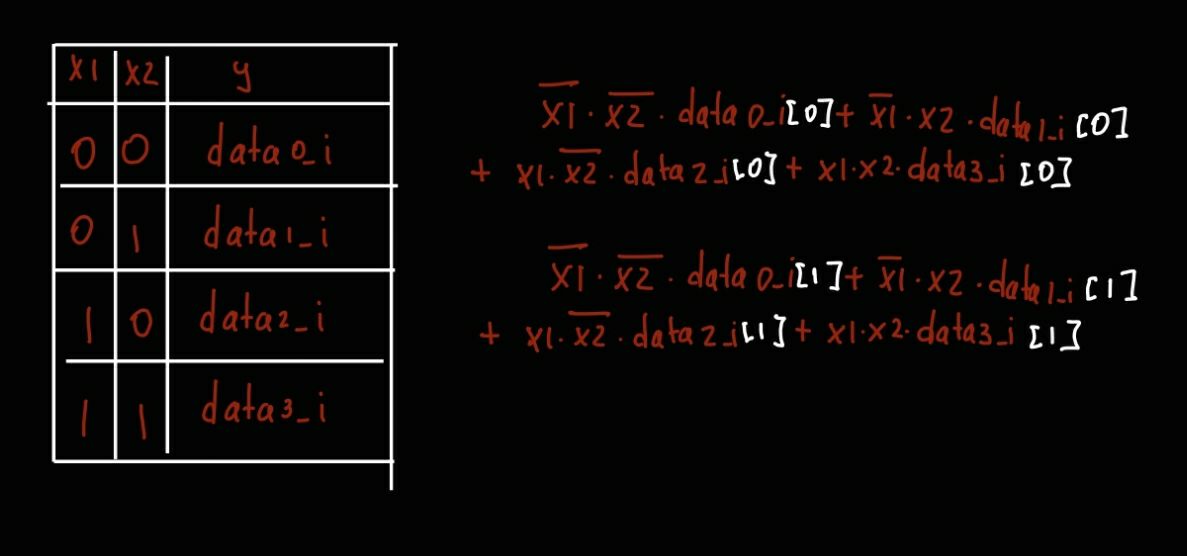 x1 x2 y
0 0 data0_i
0 1 data1_i
1 0 data2_i
1 1 data3_i
x̅1̅ · x̅2̅ · data0_i[0] + x̅1 · x2 · data1_i[0]
+ x1 · x̅2̅ · data2_i[0] + x1·x2·data3_i[0]
x̅1̅ · x̅2̅ · data0_i[1] + x̅1 · x2 · data1_i[1]
+ x1 · x̅2̅ · data2_i[1] + x1·x2·data3_i[1]